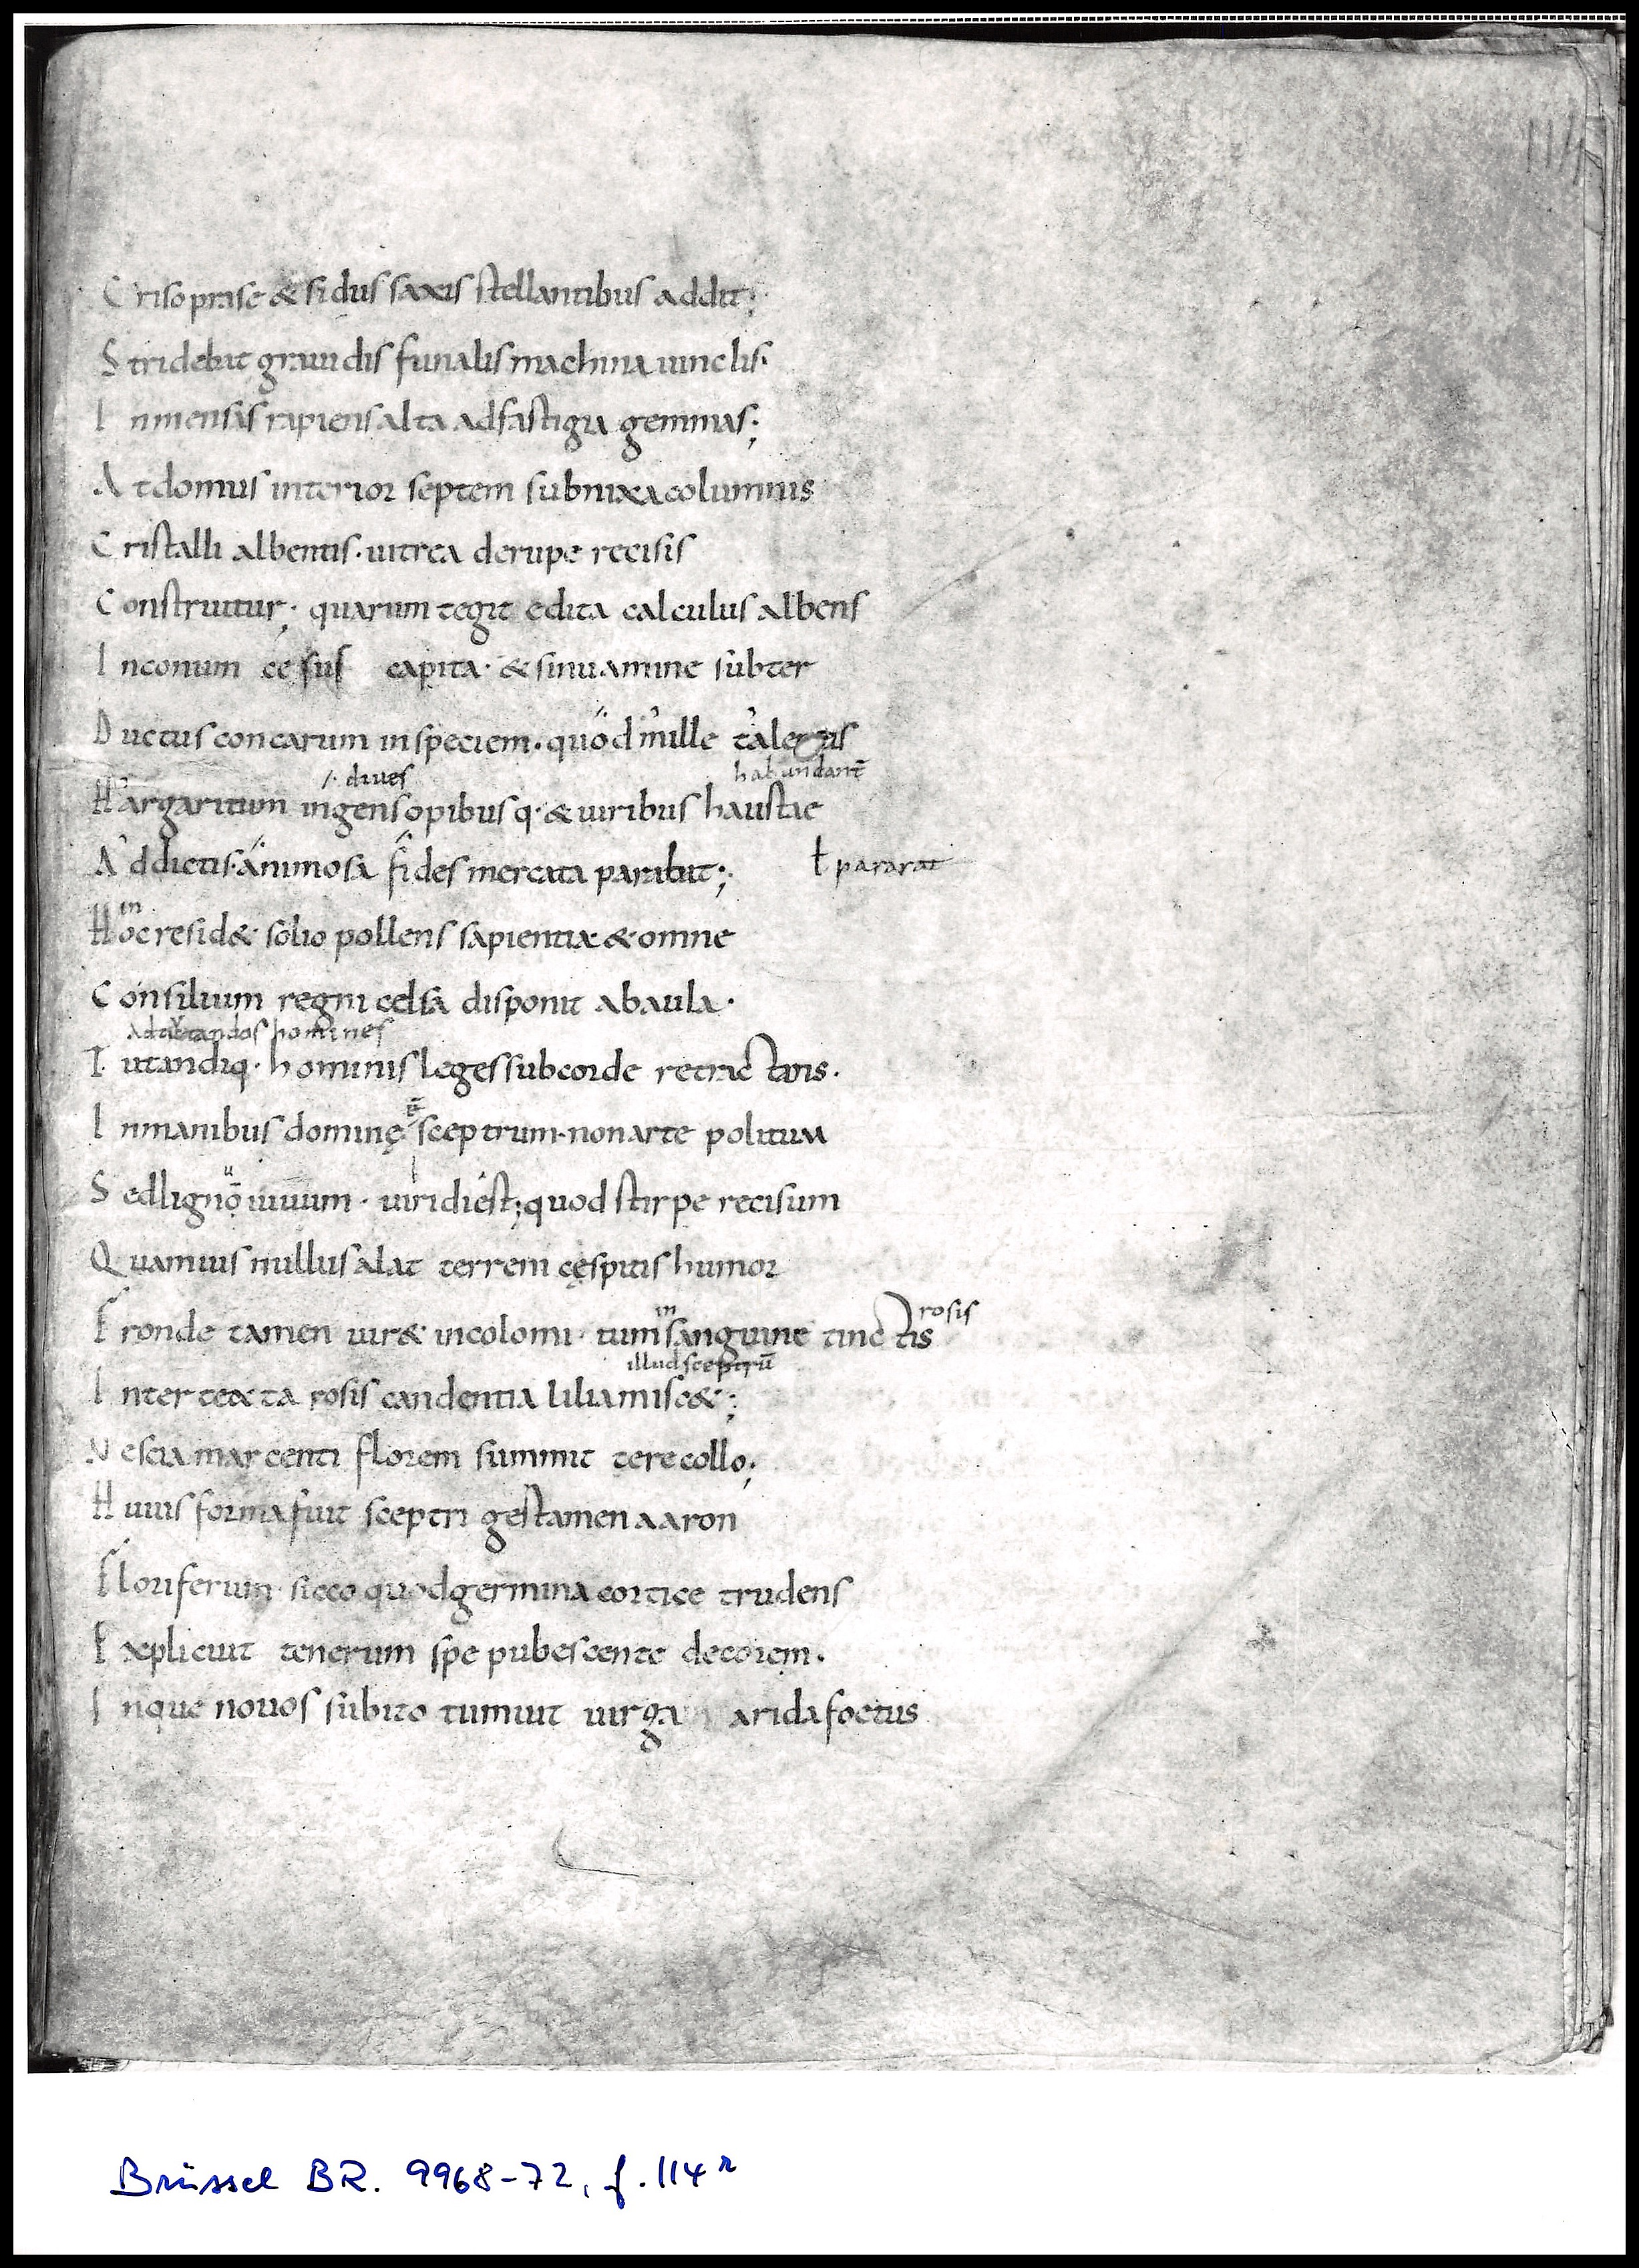 Crisoprase & sidus saxis stellantibus addit;
Stridebat grauidis funalis machina uinclis.
Inmensas rapiens alta ad fastigia gemmas;
At domus interior septem subnixa columnis
Cristalli albentis. uitrea de rupe recisis
Construitur; quarum tegit edita calculus albens
In conum cesus capita. & sinuamine subter
Ductus concarum in speciem. quod mille talentis
/. diues habundant̄
Margaritum ingens opibusq. & uiribus hauste
Addictis. animosa fides mercata parabat;. ł pararat
in
Hoc resid& solio pollens sapientia & omne
Consilium regni celsa disponit ab aula.
Ad tutandos homines
Tutandiq. hominis leges sub corde retractans.
In manibus dominę sceptrum. non arte politum
u
Sed lignō uiuum. uiridi est; quod stirpe recisum
Quamuis nullus alat terreni cęspitis humor
in rosis
Fronde tamen uir& incolomi. tum sanguine tinctis
illud sceptrū
Intertexta rosis candentia lilia misc&;
Nescia marcenti florem summit tere collo;
Huius forma fuit sceptri gestamen aaron
Floriferum. sicco quod germina cortice trudens
Explicuit tenerum spe pubescente decorem.
Inque nouos subito tumuit uirga arida foetus
Brüssel BR. 9968-72, f. 114r